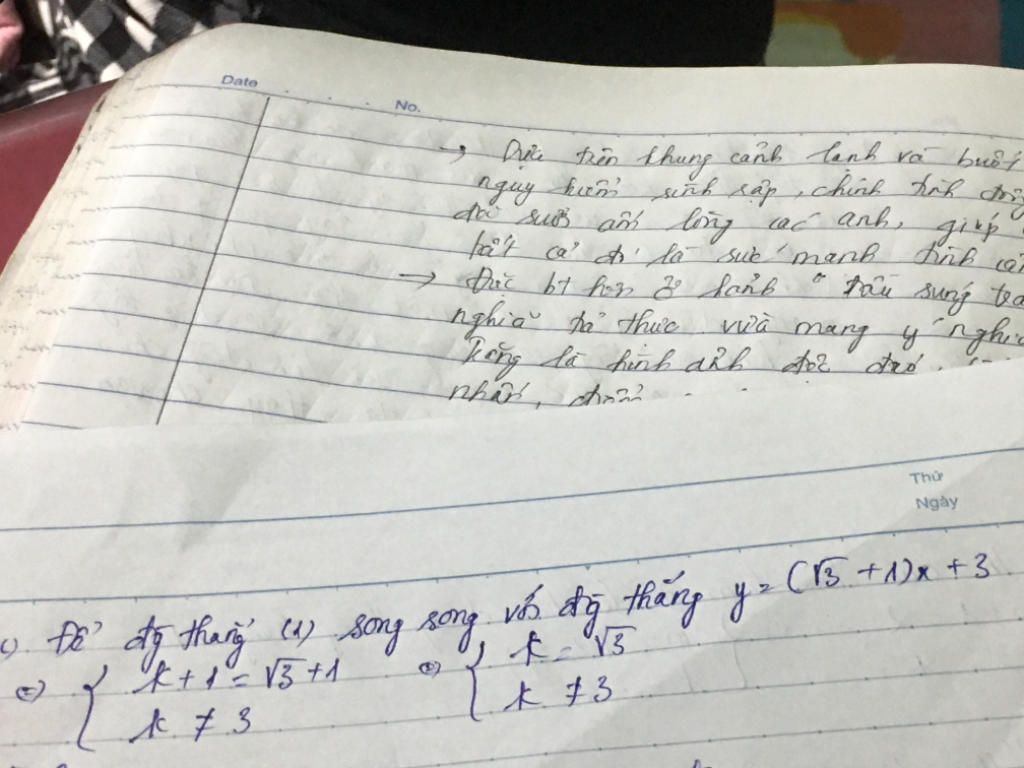 Date No.
→ Dựa trên khung cảnh lạnh và buổi
nguy hiểm sình sập, chính tình đồng
đã sưởi ấm lòng các anh, giúp
bất cả đó là sức mạnh tình cảm
→ Đặc bt hơn ở hình " đầu súng
nghĩa tả thực vừa mang ý nghĩa
là hình ảnh đối
nhất,
Thứ
Ngày
c) Để đg thẳng (1) song song với đg thẳng y = (√3 + 1)x + 3
⇔ { k + 1 = √3 + 1 ⇔ { k = √3
k ≠ 3 k ≠ 3